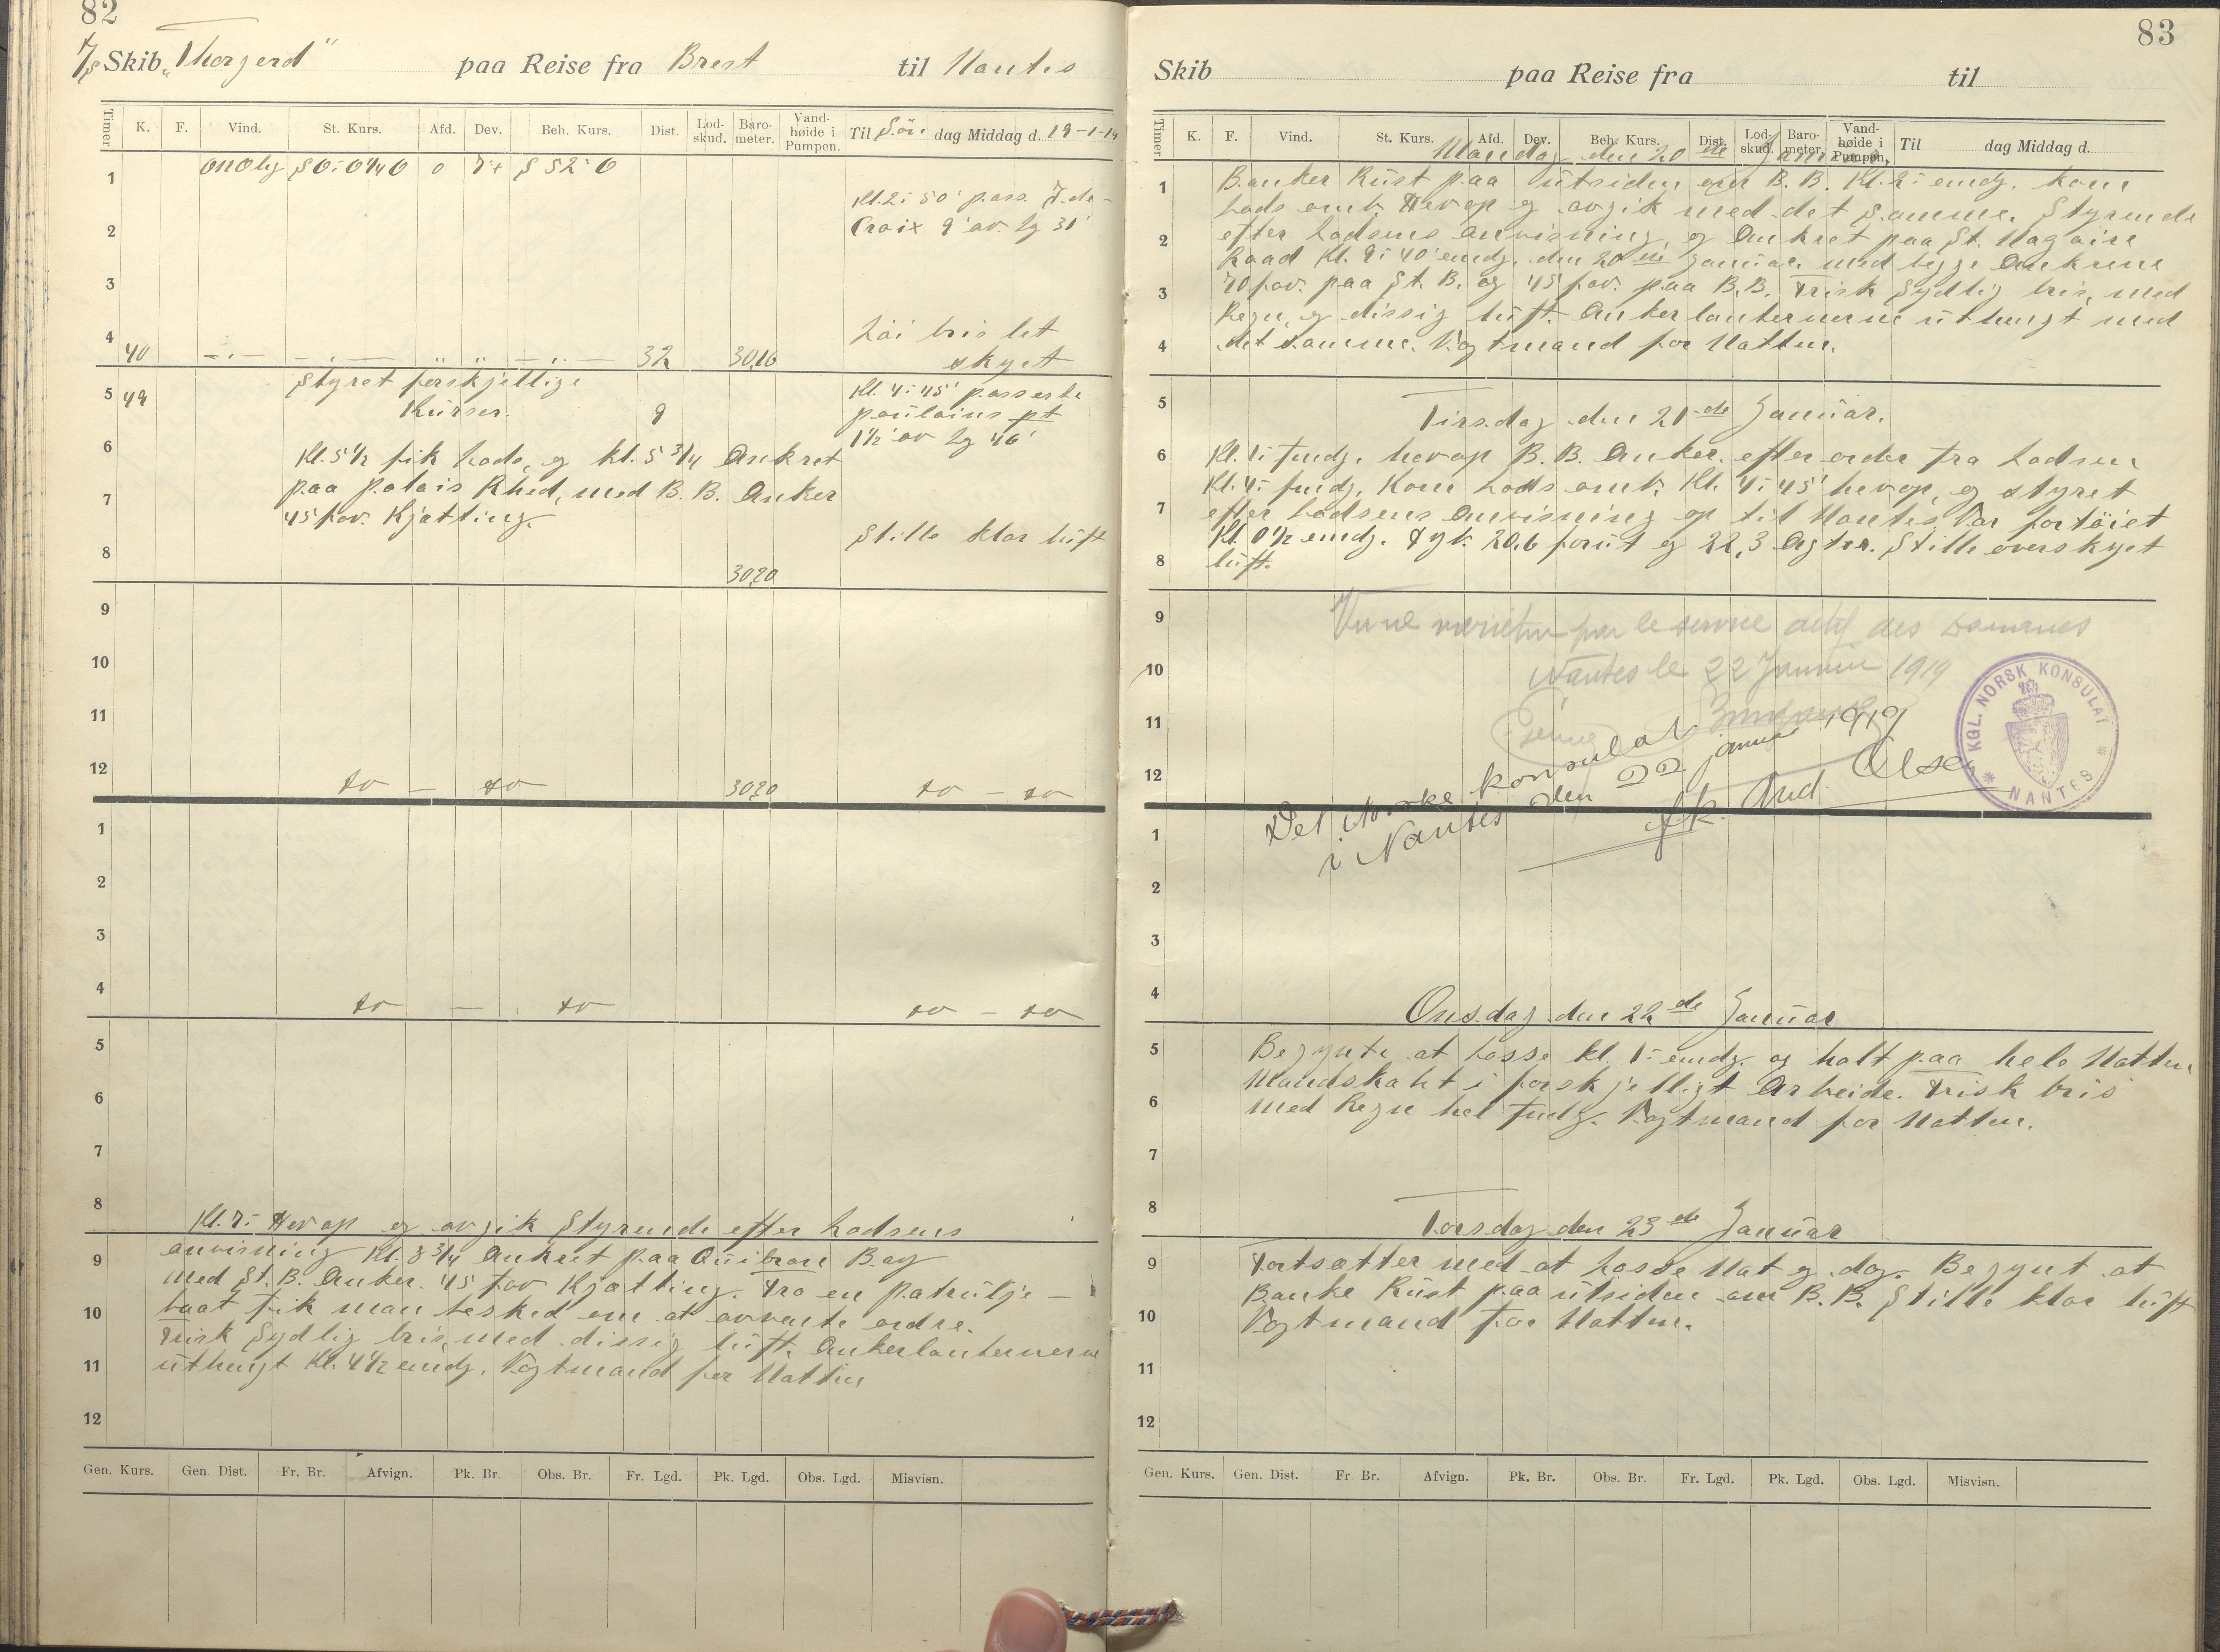 82
7/s Skib „Thorgerd" paa Reise fra Brest til Nantes
Timer K. F. Vind. St. Kurs. Afd. Dev. Beh. Kurs. Dist. Lod-skud. Baro-meter. Vand-høide i Pumpen. Til Søn dag Middag d. 19-1-19
1 SO:O¼O 0 7+ S 52° O
Kl. 2: 50' pass. I. de-
2 Croix 9' av. Lg 31'
3
Løi bris let
4 40 32 30,16 skyet
5 49 Styret forskjellige Kl. 4: 45' passerte
Kurser. 9 poulains pt
6 1½' av Lg 40'
Kl. 5½ fik Lods, og kl. 5¾ Ankret
7 paa Palais Rhed, med B. B. Anker
45 fav. Kjætting.
8 Stille klar luft
30,20
9
10
11
12 do — do 30,20 do — do
1
2
3
4 do — do do — do
5
6
7
8 Kl. 7: Hev op og avgik Styrende efter Lodsens
9 anvisning Kl. 8¾ Ankret paa Quibron Bay
med St. B. Anker. 45 fav Kjætting. Fra en Patrulje-
10 baat fik man besked om at avvente ordre.
Frisk Sydlig bris, med dissig luft. Ankerlanternerne
11 uthengt Kl. 4½ emdg. Vagtmand for Natten
12
Gen. Kurs. Gen. Dist. Fr. Br. Afvign. Pk. Br. Obs. Br. Fr. Lgd. Pk. Lgd. Obs. Lgd. Misvisn.
83
Skib paa Reise fra til
Timer K. F. Vind. St. Kurs. Afd. Dev. Beh. Kurs. Dist. Lod-skud. Baro-meter. Vand-høide i Pumpen. Til dag Middag d.
Mandag den 20de Januar.
1 Banker Rust paa utsiden om B. B. Kl. 2: emdg. kom
Lods omb. Hev op og avgik med det Samme. Styrende
2 efter Lodsens anvisning, og Ankret paa St. Nazaire
Raad Kl. 9: 40' emdg. den 20de Januar. med begge Ankrene
3 70 fav. paa St. B. og 45 fav. paa B.B. Frisk Sydlig bris, med
Regn, og dissig luft. Anker lanternerne uthengt med
4 det samme. Vagtmand for Natten.
5 Tirsdag den 21de Januar.
6 Kl. 1: fmdg. hev op B. B. Anker. efter order fra Lodsen
Kl. 4: fmdg. Kom Lods omb. Kl. 4: 45' hev op, og styret
7 efter Lodsens Anvisning op til Nantes. Var fortøiet
Kl. 0½ emdg. Dyb. 20,6 forut og 22,3 Agter. Stille overskyet
8 luft.
9 Vu ne varietur par le service actif des Douanes
10 Nantes le 22 Janvier 1919
11
12 Det Norske konsulat
i Nantes den 22 januar 1919
fk. And. Olsen
KGL. NORSK KONSULAT * NANTES *
1
2
3
4 Onsdag den 22de Januar
5 Begynte at Losse kl. 1: emdg. og holt paa hele Natten
Mandskabet i forskjelligt Arbeide. Frisk bris
6 med Regn hel fmdg. Vagtmand for Natten.
7
8 Torsdag den 23de Januar
9 Fortsætter med at Losse Nat og dag. Begynt at
Banke Rust paa utsiden om B. B. Stille klar luft
10 Vagtmand for Natten.
11
12
Gen. Kurs. Gen. Dist. Fr. Br. Afvign. Pk. Br. Obs. Br. Fr. Lgd. Pk. Lgd. Obs. Lgd. Misvisn.